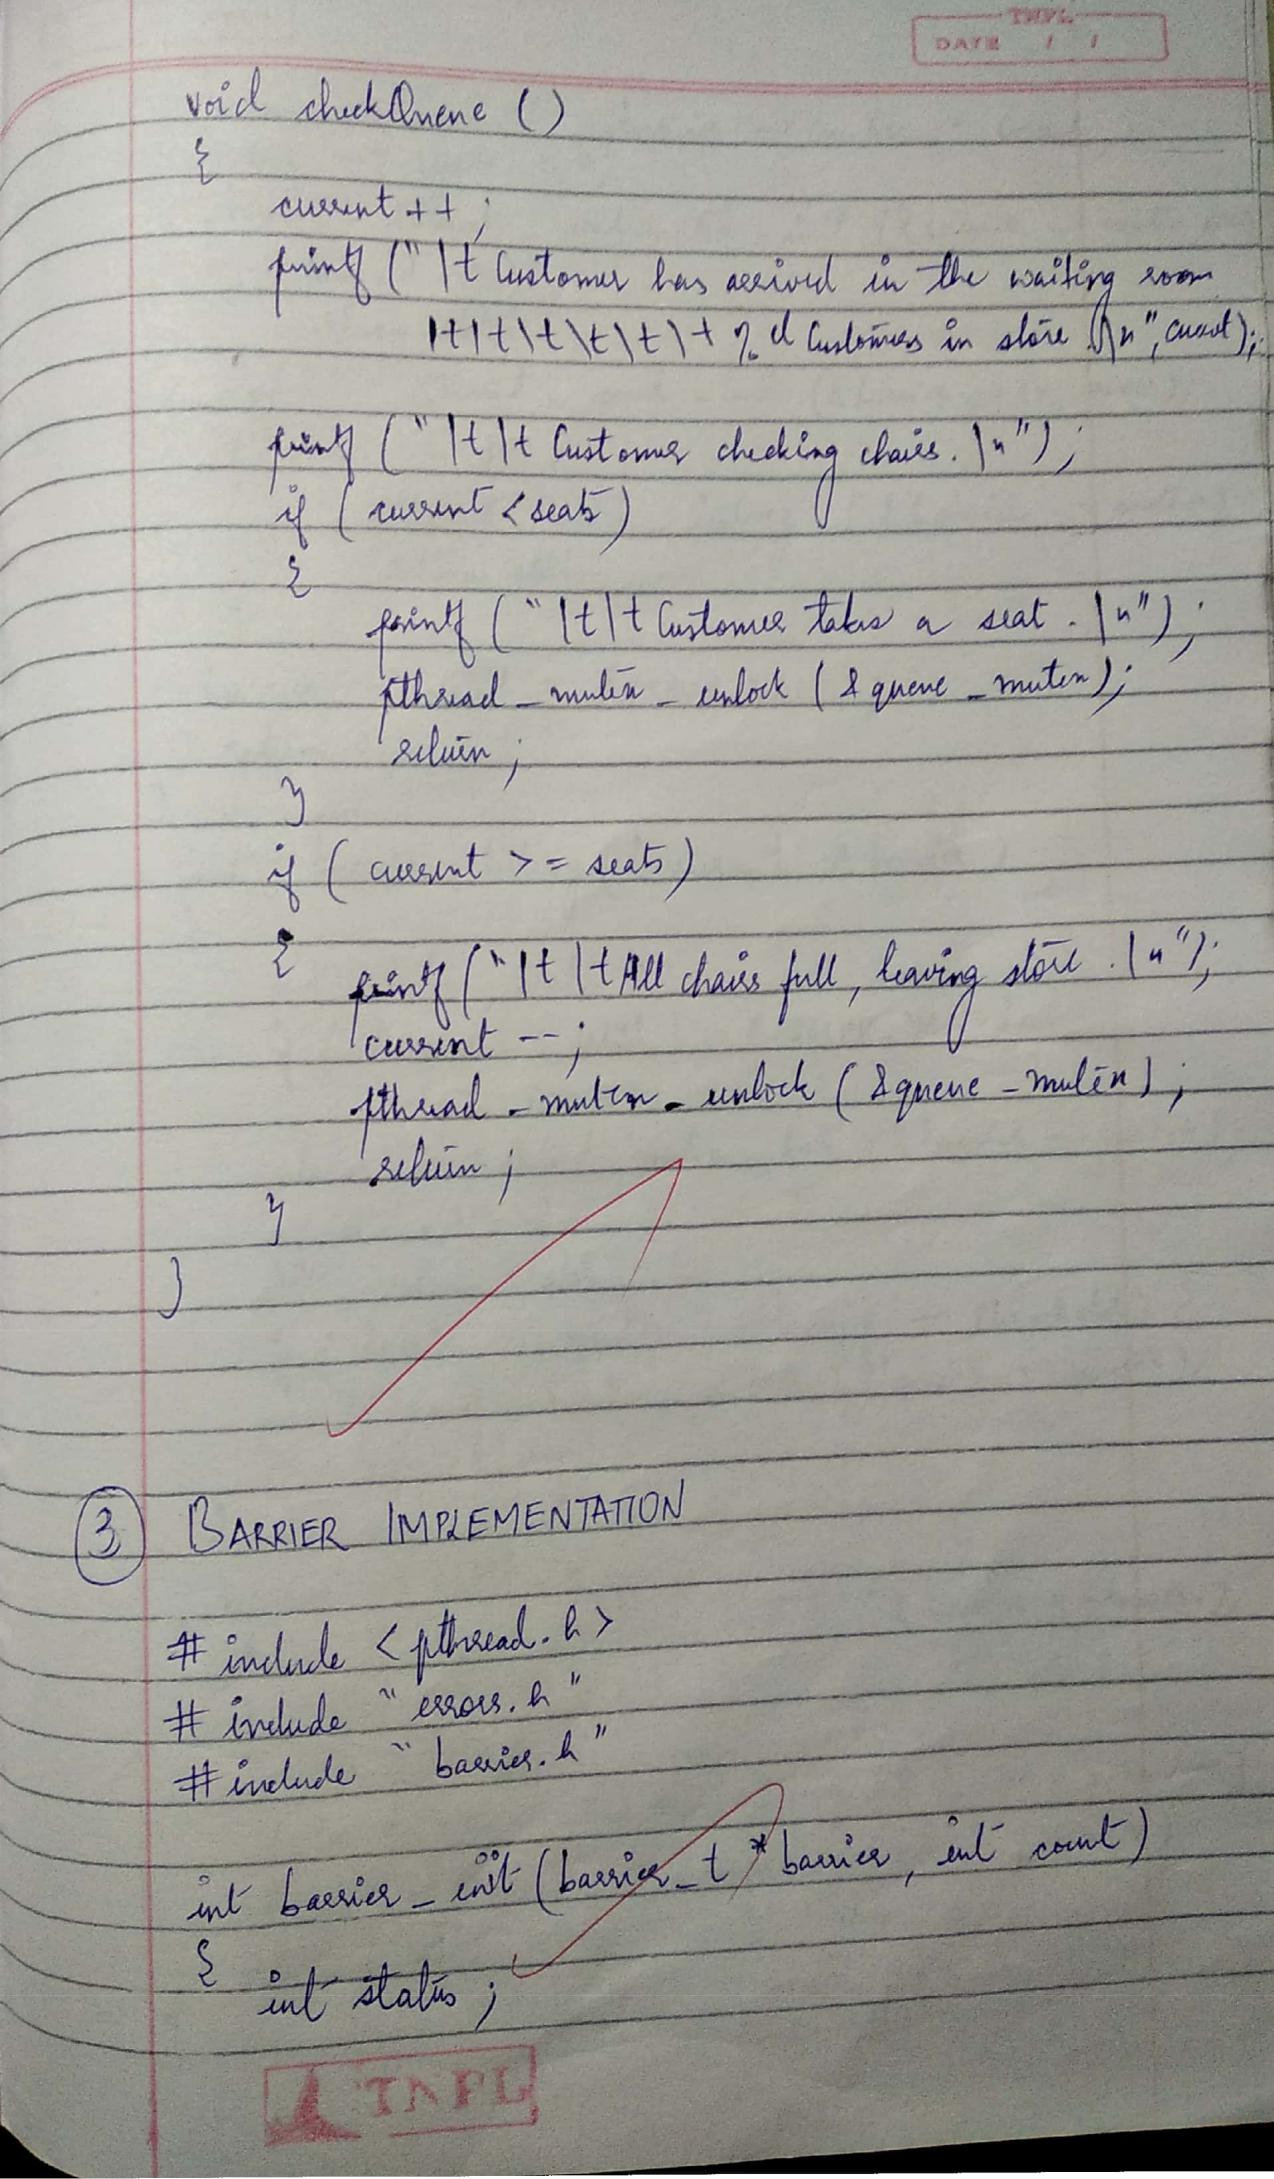 TNPL
DATE / /
void checkQueue ()
{
current ++ ;
printf ("\t Customer has arrived in the waiting room
\t\t\t\t\t\t %d Customers in store \n", current);
printf ("\t\t Customer checking chairs. \n");
if (current < seats)
{
printf ("\t\t Customer takes a seat . \n");
pthread_mutex_unlock (&queue_mutex);
return ;
}
if (current >= seats)
{
printf ("\t\t All chairs full, leaving store . \n");
current --;
pthread_mutex_unlock (&queue_mutex);
return ;
}
}
3 BARRIER IMPLEMENTATION
# include <pthread.h>
# include "errors.h"
# include "barrier.h"
int barrier_init (barrier_t *barrier, int count)
{
int status ;
TNPL